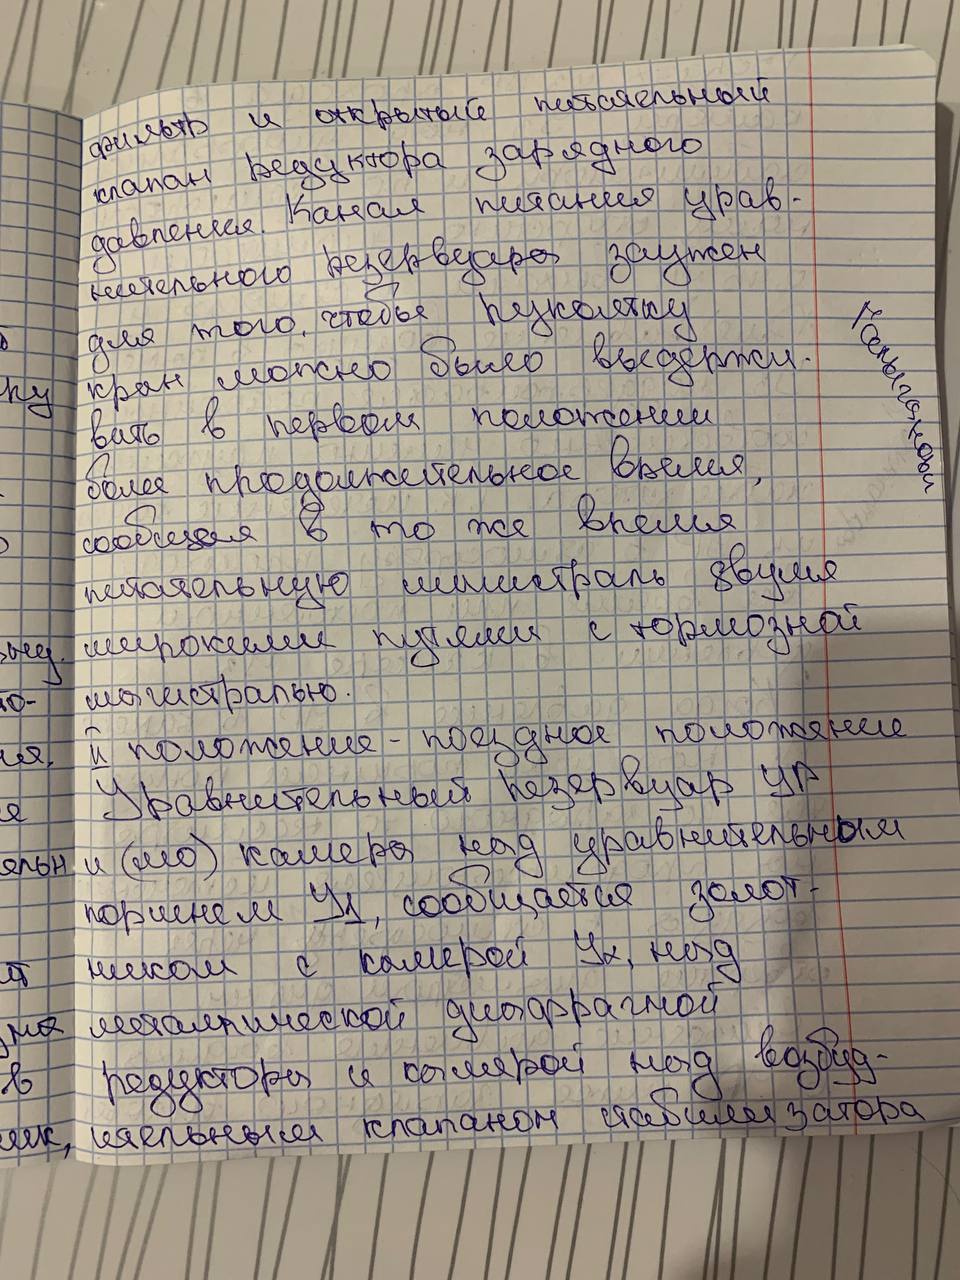 фильтр и открытый питательный
клапан редуктора зарядного
давления. Канал питания урав-
нительного резервуара заужен
для того, чтобы рукоятку
кран можно было выдержи-
вать в первом положении
более продолжительное время,
сообщая в то же время
питательную магистраль двумя
широкими путями с тормозной
магистралью.
II положение - поездное положение
Уравнительный резервуар УР
и (мо) камера над уравнительным
поршнем У1, сообщается золот-
ником с камерой У2, над
металлической диафрагмой
редуктора и камерой над возбуд-
ительным клапаном стабилизатора